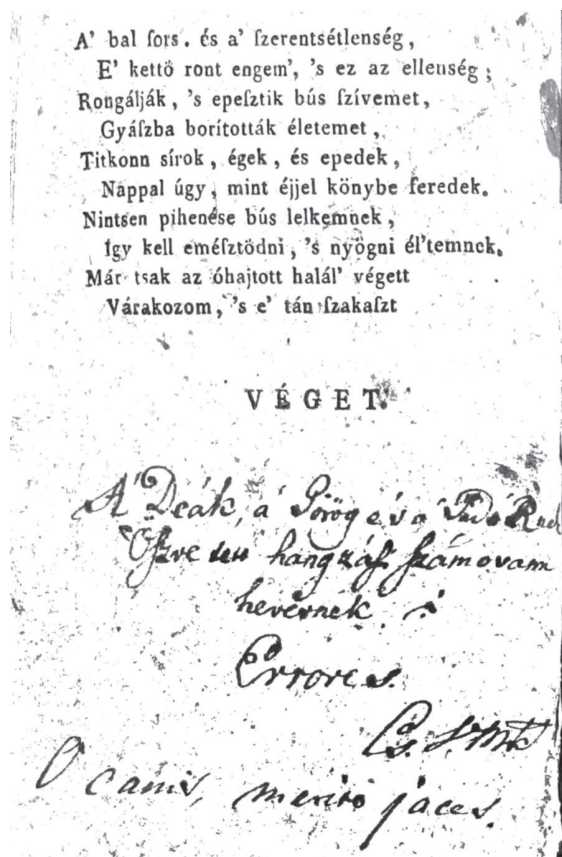 A' bal ſors. és a' ſzerentsétlenség,
E' kettö ront engem', 's ez az ellenség;
Rongálják, 's epeſztik bús ſzívemet,
Gyáſzba borították életemet,
Titkonn sírok, égek, és epedek,
Nappal úgy, mint éjjel könybe feredek.
Nintsen pihenése bús lelkemnek,
Így kell eméſztödni, 's nyögni él'temnek.
Már tsak az óhajtott halál' végett
Várakozom, 's e' tán ſzakaſzt
VÉGET.
A' Deák, a' Görög és a'
hangzás
hevernek
Errores.
O canis, merito jaces.